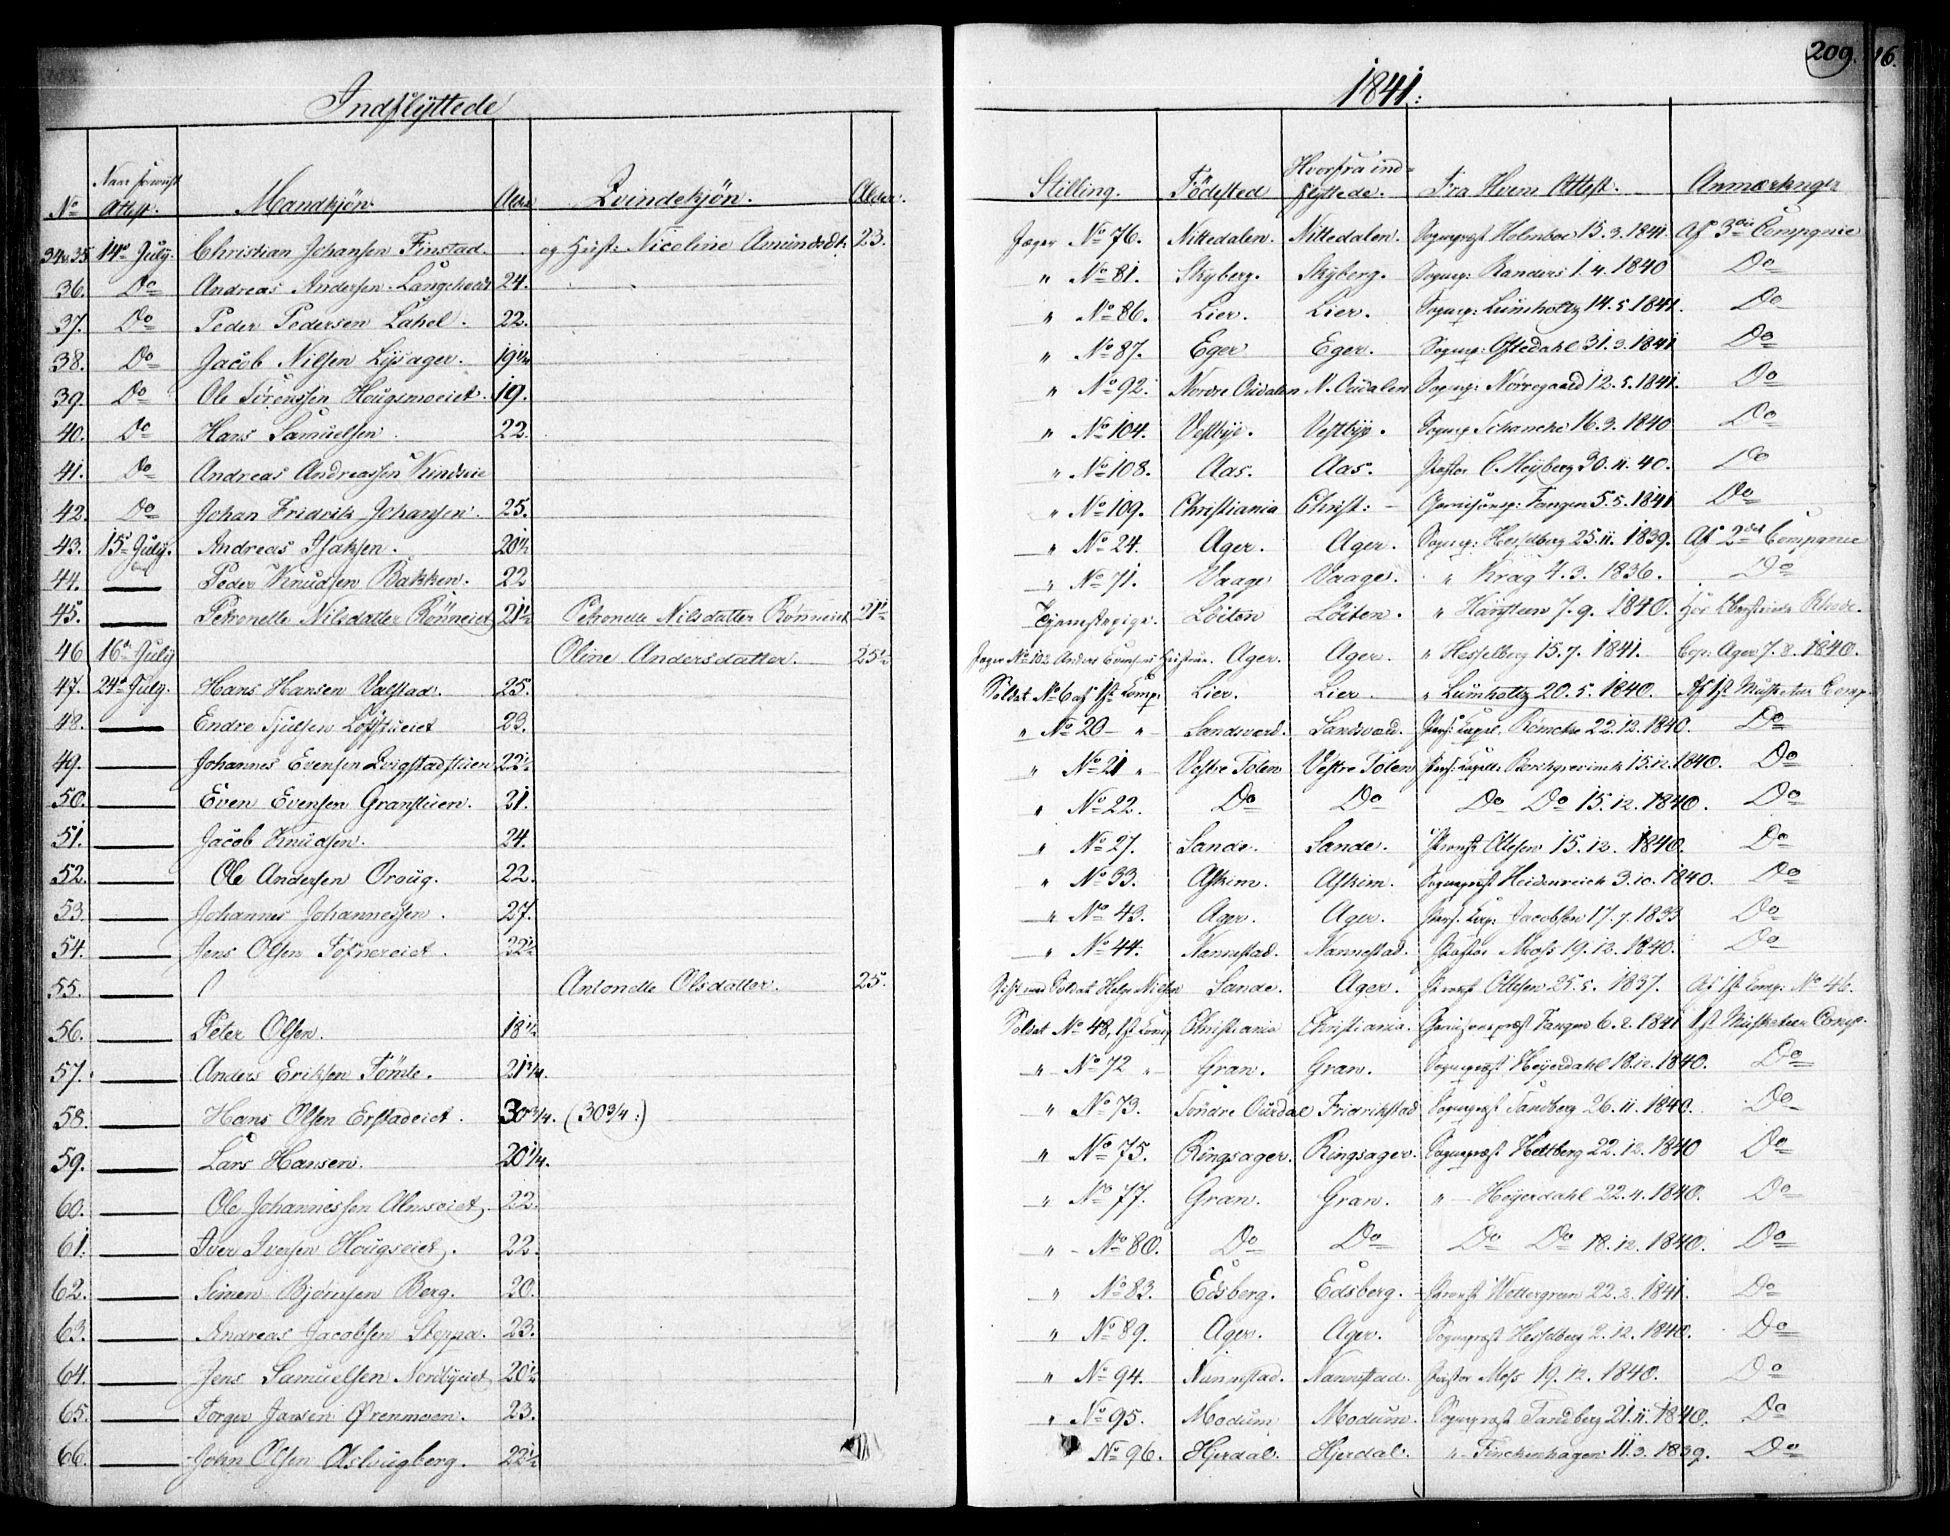 Indflyttede
1841:
209.
16.
No Attest. Mandkjön. Alder Qvindekjön. Alder. Stilling. Födested Hvorfra indflyttede. Fra Hvem Attest. Anmærkninger
34 & 35 14de July. Christian Johansen Finstad. og Hust: Nicoline Amundsdt: 23. Jæger No 76. Nittedalen. Nittedalen. Sognepræst Holmboe 15.3.1841. Af 3die Compagnie
36. Do Andreas Andersen 24. " No 81. Skyberg. Skyberg. Sognep: Randers 1.4.1840 Do
37. Do Peder Pedersen Lahel. 22. " No 86. Lier. Lier. Sognep: Lumholtz 14.5.1841. Do
38. Do Jacob Nilsen Lysager. 19 1/4 " No 87. Eger Eger. Sognep: Oftedahl 31.3.1841 Do
39. Do Ole Sörenssen Hougsmoeiet. 19. " No 92. Nordre Oudalen N. Oudalen Sognep: Nörregaard 12.5.1841. Do
40. Do Hans Samuelsen. 22. " No 104. Vestbye. Vestbye. Sognep Schanche 16.3.1840 Do
41. Do Andreas Andreassen " No 108. Aas. Aas. Pastor C. Heyberg 30.11.40. Do
42. Do Johan Fridrik Johansen. 25. " No 109. Christiania Christ: Garnisonsp: Fangen 5.5.1841 Do
43. 15de July. Andreas Isaksen. 20 1/2 " No 24. Ager. Ager. Sognep: Hesselberg 25.11.1839. Af 2det Compagnie
44. Peder Knudsen Bakken. 22 " No 71. Vaage Vaage. " Krag 4.3.1836. Do
45. Petronelle Nilsdatter Rönneiet 21 1/2 Petronelle Nilsdatter Rönneiet 21 1/2 Tjenestepige. Löiten Löiten. " 7.9.1840. Hos
46 16de July Oline Andersdatter. 25 1/2 Jæger No 102 Anders Evensens Hustrue. Ager. Ager. " Hesselberg 15.7.1841. Cop. Ager 7.8.1840.
47. 24de July. Hans Hansen Valstad. 25. Soldat No 6 af 1st Comp: Lier. Lier. " Lumholtz 20.5.1840. Af 1st Musketeer Comp.
48. Endre 23. " No 20 - " - Sandsværd. Sandsværd. Pers: Capel. 22.12.1840. Do
49. Johannes Evensen 22 1/2 " No 21 " Vestre Toten Vestre Toten Pers: Capellan Borchgrevinck 15.12.1840. Do
50. Even Evensen Granstuen. 21. " No 22. Do Do Do Do 15.12.1840. Do
51. Jacob Knudsen. 24. " No 27. Sande. Sande. Provst Ottesen 15.12.1840. Do
52. Ole Andersen Oroug. 22. " No 33. Askim. Askim. Sognepræst Heidenreich 3.10.1840. Do
53. Johannes Johannessen. 27. " No 43. Ager. Ager. Pers: Cap: Jacobsen 17.7.1833 Do
54. Jens Olsen 22 1/2 " No 44. Nannestad. Nannestad. Pastor Moss 19.12.1840. Do
55. Antonette Olsdatter. 25. Gift med Soldat Helge Nielsen Sande. Ager. Provst Ottesen 25.5.1837. Af 1st Comp: No 46.
56. Peter Olsen. 18 1/2 Soldat No 48, 1st Comp Christiania Christiania. Garnisonspræst Fangen 6.2.1841 1st Musketeer Comp.
57. Anders Eriksen Tömte. 21 3/4. " - No 72 " - Gran. Gran. Sognepræst Heyerdahl 18.12.1840. Do
58. Hans Olsen Erstadeiet. 30 3/4. (30 3/4:) " No 73. Söndre Ourdal Fridrikstad Sognepræst Tandberg 26.11.1840. Do
59. Lars Hansen. 20 1/4. " No 75. Ringsager. Ringsager. Sognepræst Heltberg 22.12.1840 Do
60. Ole Johannessen Almseiet. 22. " No 77. Gran. Gran. " - Heyerdahl 22.4.1840. Do
61. Iver Iversen Hougseiet. 22. " - No 80. Do Do Do Do 18.12.1840. Do
62. Simen Björnsen Berg. 20. " No 83. Edsberg. Edsberg. Provst Wettergreen 22.2.1841. Do
63. Andreas Jacobsen Steppa. 23. " No 89. Ager. Ager. Sognepræst Hesselberg 2.12.1840. Do
64. Jens Samuelsen Nordbyeiet 20 1/2 " No 94. Nannestad. Nannestad. Pastor Moss 19.12.1840. Do
65. Torger Jansen Örenmoen. 23. " No 95. Modum Modum. Sognepræst Tandberg 21.11.1840. Do
66. John Olsen Aslaugberg. 22 1/2 No 96. Hjerdal. Hjerdal. " - Finckenhagen 11.3.1839. Do